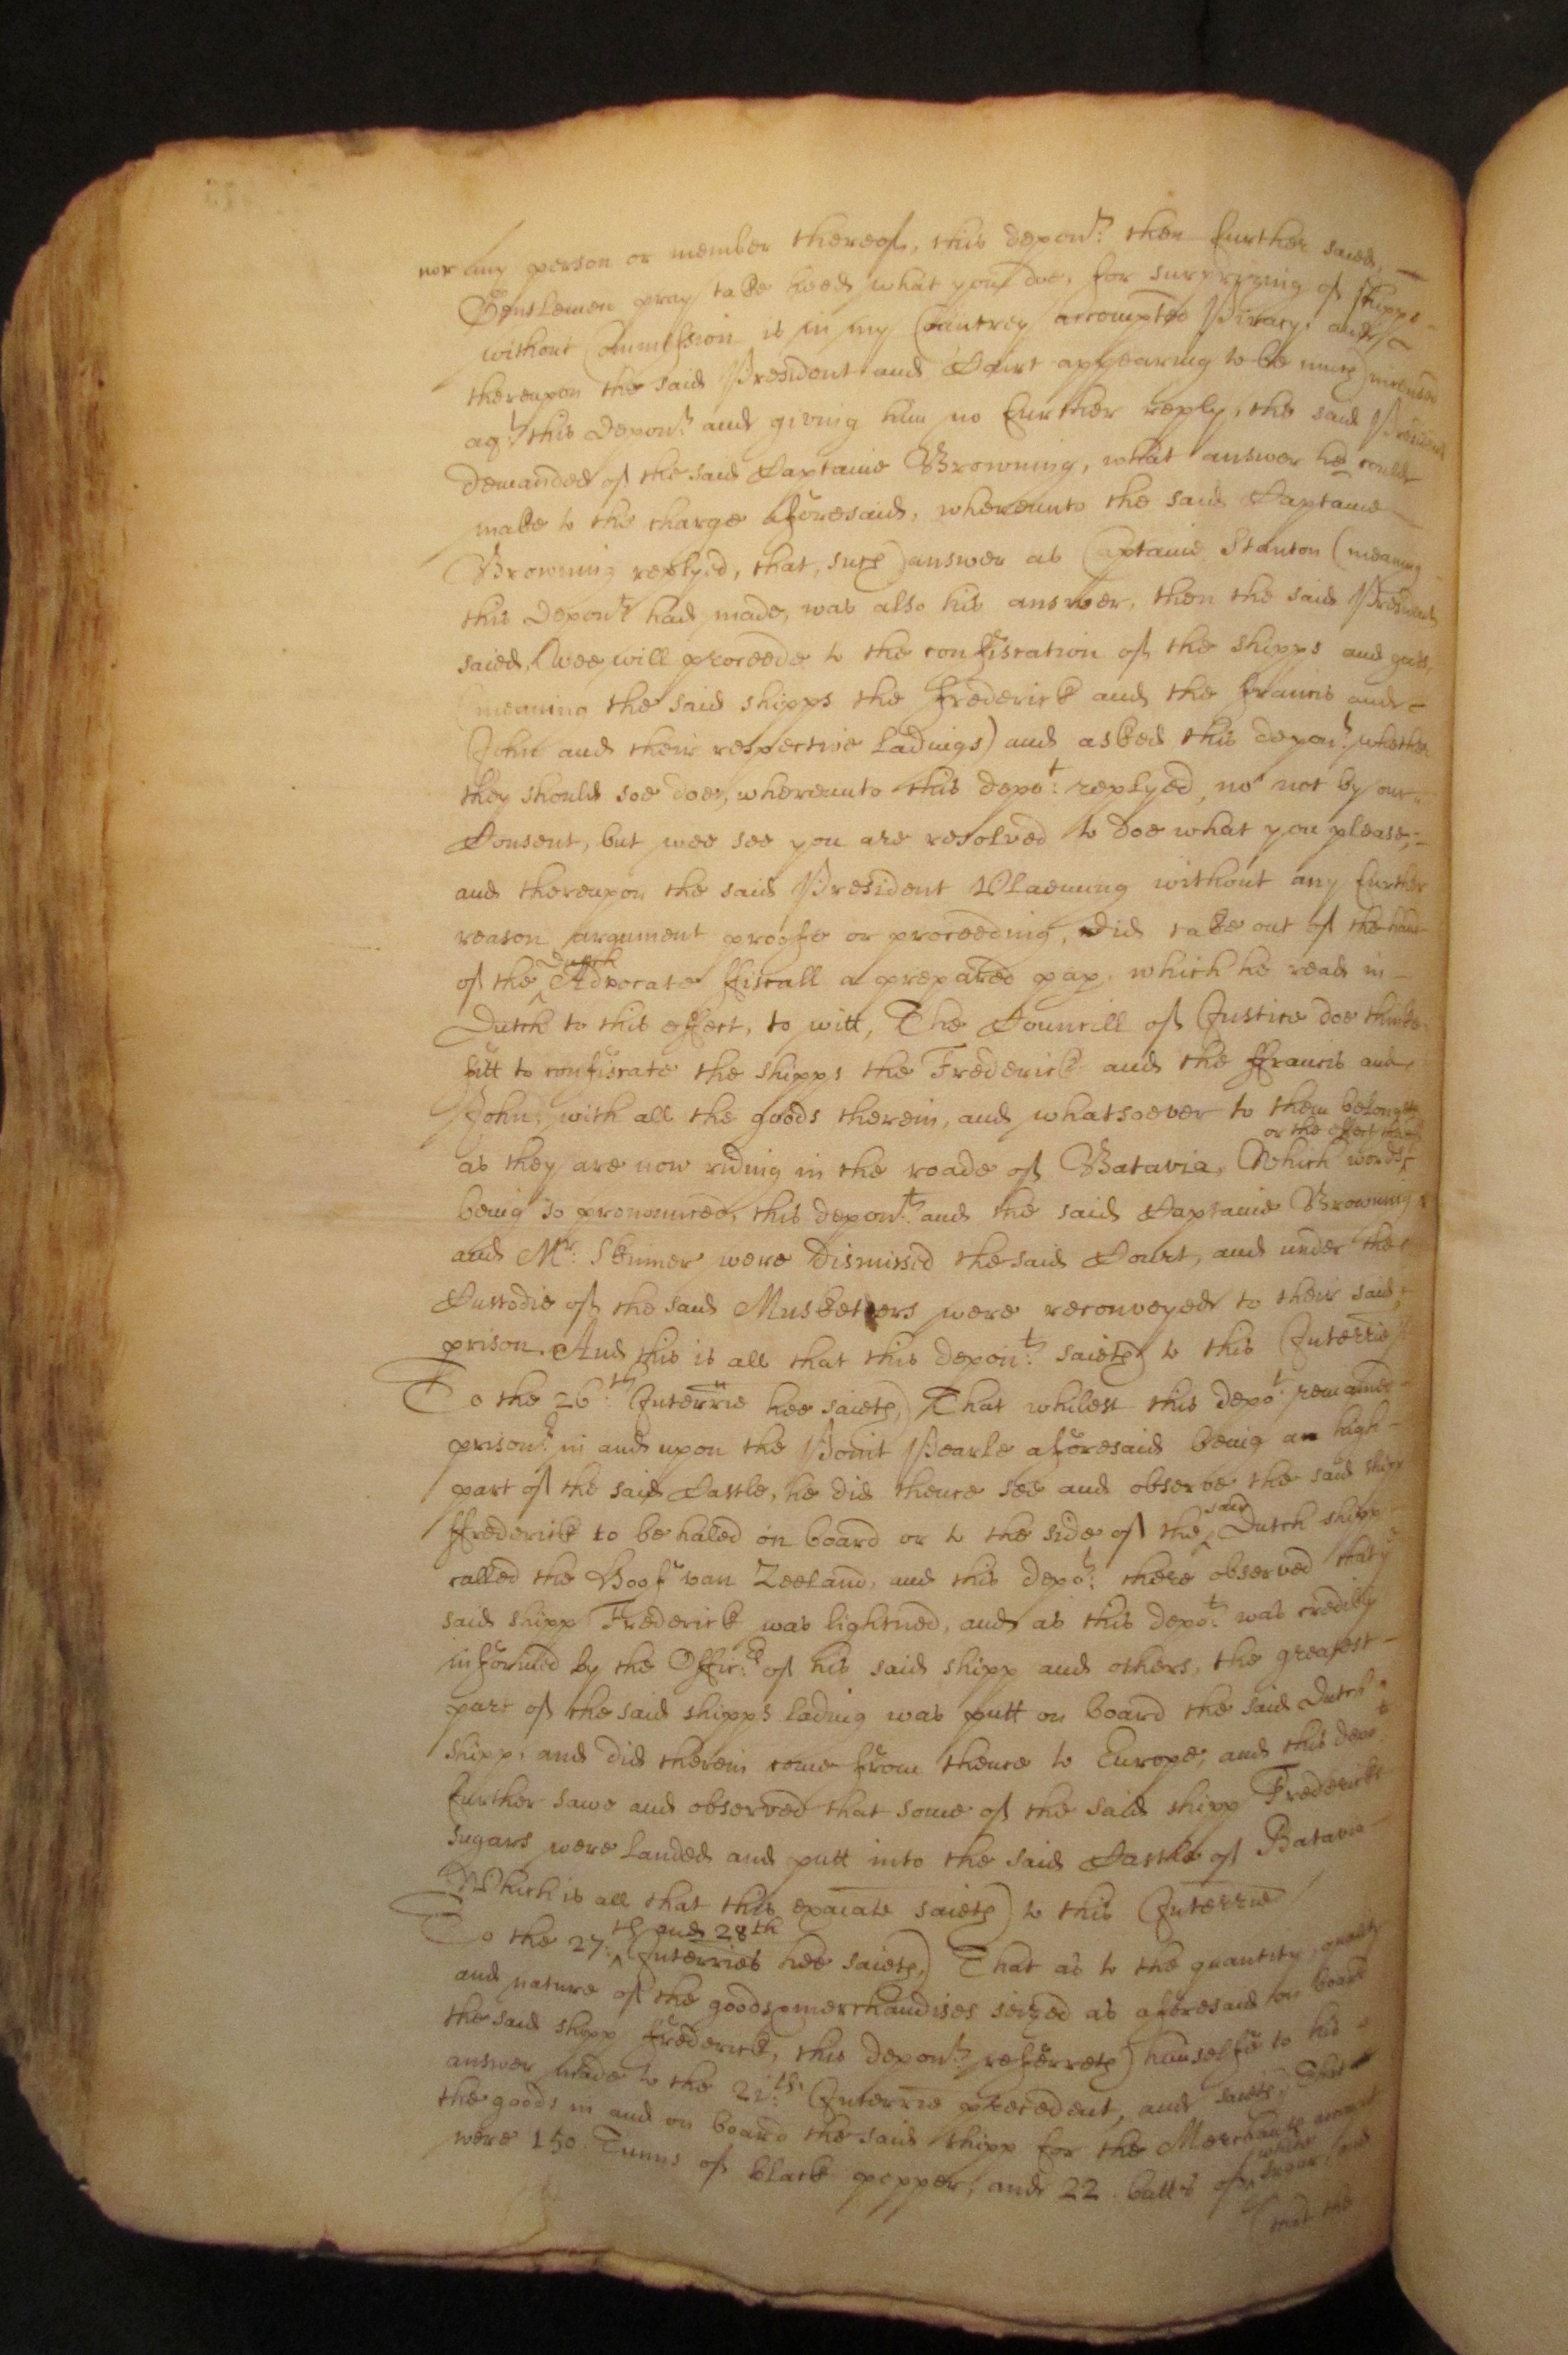 nor any person or member thereof, this depon:t then further saied,
Gentlemen pray take heed what you doe, for surprizing of shipps
without Commission is in my Countrey accompted Piracy, and
thereupon the said President and Court appearing to be much incensed
ag:t this Depon:t and giving him no further reply, the said President
demanded of the said Captaine Browning, what answer he could
make to the charge aforesaid, whereunto the said Captaine
Browning replyed, that, such answer as Captaine Stanton (meaning
this Depon:t had made, was also his answer, then the said President
saied, Wee will proceede to the confiscation of the shipps and goods,
(meaning the said shipps the Frederick and the Francis and
John and their respective ladings) and asked this depon:t whether
they should soe doe, whereunto this depo:t replyed, no not by our
Consent, but wee see you are resolved to doe what you please,
and thereupon the said President Vlaeming without any further
reason argument proofe or proceeding, did take out of the hand
of the Dutch Advocate ffiscall a prepared pap. which he read in
Dutch to this effect, to witt, The Councill of Justice doe thinke
fitt to confiscate the shipps the Frederick and the ffrancis and
John, with all the goods therein, and whatsoever to them belongeth
as they are now riding in the roade of Batavia, Which words or the effect thereof
being so pronounced, this depon:t and the said Captaine Browning
and Mr: Skinner were dismissed the said Court, and under the
Custodie of the said Musketeers were reconveyed to their said
prison. And this is all that this depon:t saieth to this Interrie
To the 26:th Interrie hee saieth, That whilest this depo:t remained
prison:r in and upon the Point Pearle aforesaid being an high
part of the said Castle, he did thence see and observe the said shipp
ffrederick to be haled on board or to the side of the said Dutch shipp
called the Hoof van Zeeland, and this depo:t there observed that ye
said shipp Frederick was lightned, and as this depo:t was credibly
informed by the Offic:rs of his said shipp and others, the greatest
part of the said shipps lading was putt on board the said Dutch
shipp, and did therein come from thence to Europe, and this depo:t
further sawe and observed that some of the said shipp Fredericks
sugars were landed and putt into the said Castle of Batavia
Which is all that this exaiate saieth to this Interrie
To the 27:th and 28th Interries hee saieth, That as to the quantity, quality
and nature of the goods merchandises seized as aforesaid on board
the said shipp ffrederick, this depon:t referreth himselfe to his
answer made to the 21:th Interrie precedent, and saieth, That
the goods in and on board the said shipp for the Merchants account
were 150 Tunns of black pepper, and 22 butts of white sugar, and
that the